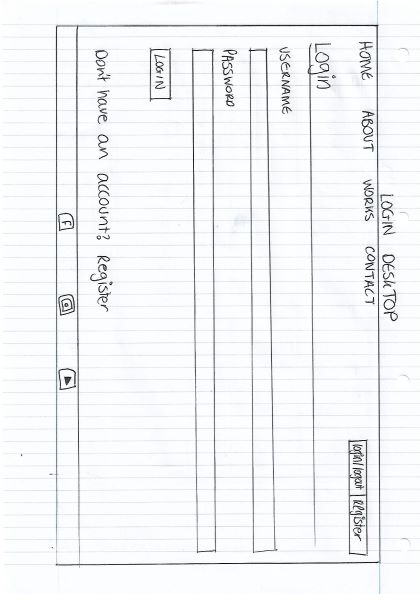 LOGIN DESKTOP
HOME ABOUT WORKS CONTACT login/logout Register
Login
USERNAME
PASSWORD
LOGIN
Don't have an account? Register
F